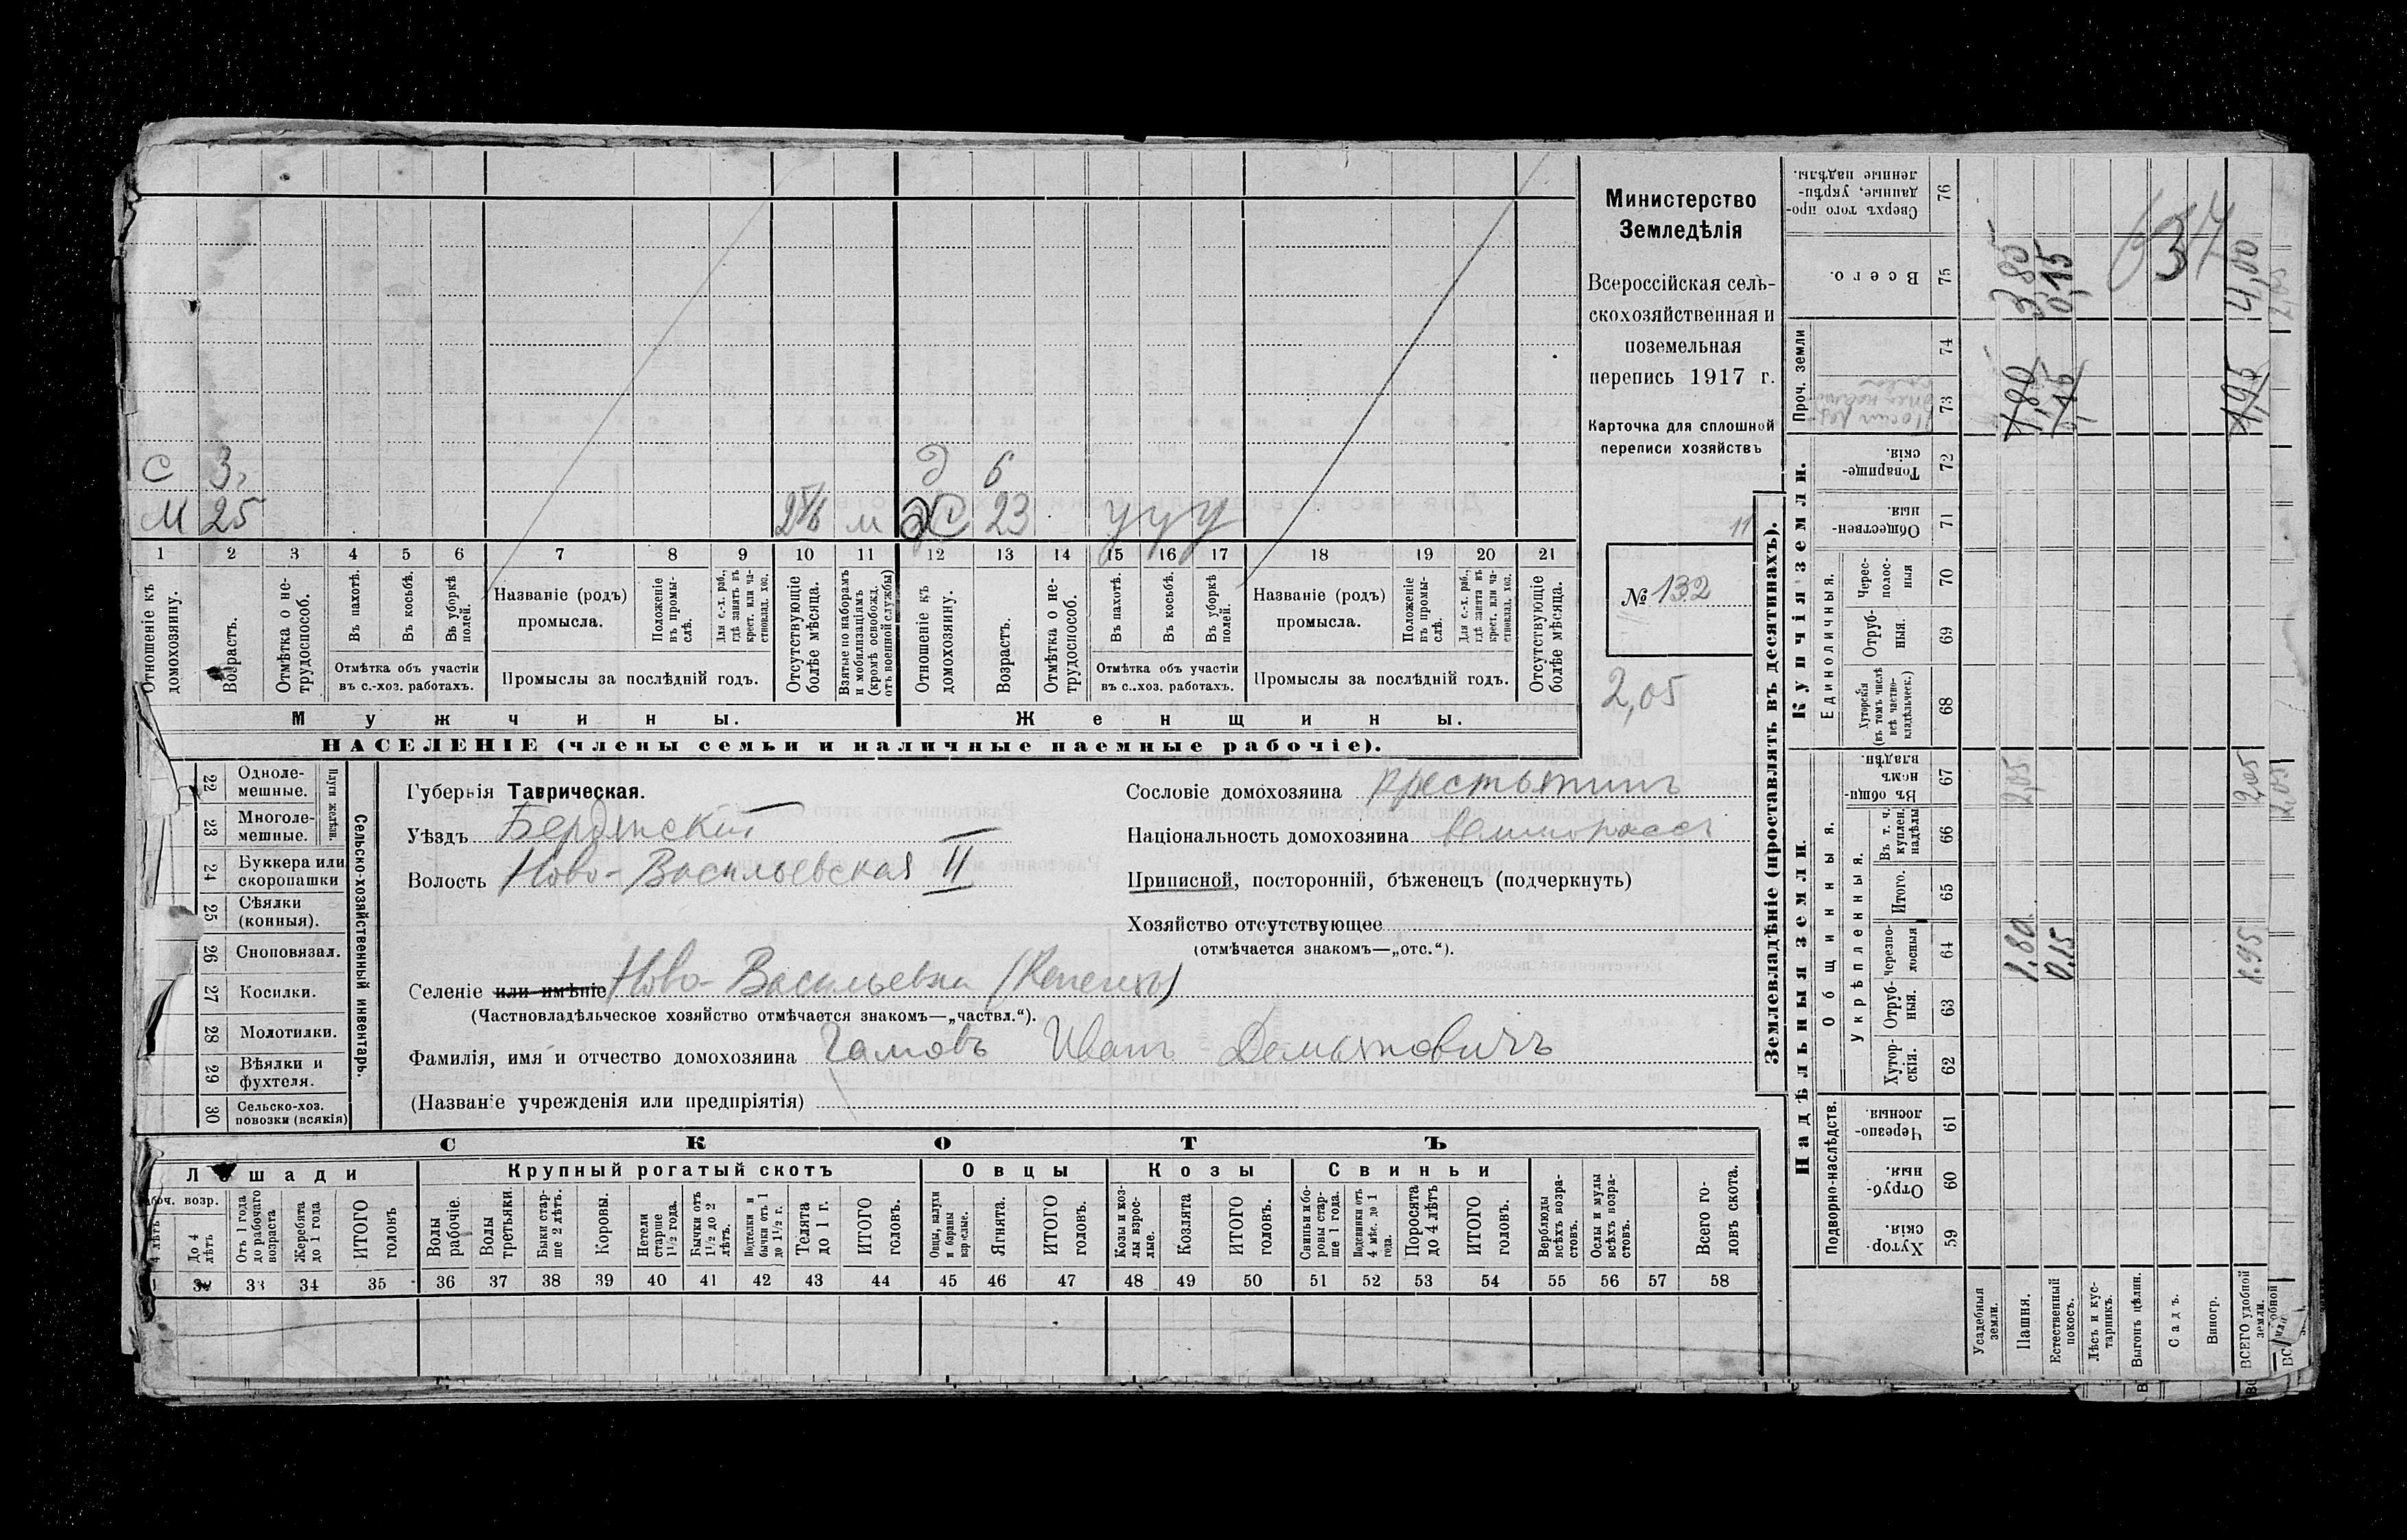 С 3, д 6
М 25 м Ж 23 у у у
1 2 3 4 5 6 7 8 9 10 11 12 13 14 15 16 17 18 19 20 21
Отношеніе къ домохозяину.
Возрастъ.
Отмѣтка о нетрудоспособ.
Въ пахотѣ.
Въ косьбѣ.
Въ уборкѣ полей.
Отмѣтка объ участіи
въ с.-хоз. работахъ.
Названіе (родъ)
промысла.
Положеніе въ промыслѣ.
Для с.-х. раб., гдѣ занятъ въ крест. или частновлад. хоз.
Промыслы за послѣдній годъ.
Отсутствующіе болѣе мѣсяца.
Взятые по наборамъ и мобилизаціямъ (кромѣ освобожд. отъ военной службы)
Отношеніе къ домохозяину.
Возрастъ.
Отмѣтка о нетрудоспособ.
Въ пахотѣ.
Въ косьбѣ.
Въ уборкѣ полей.
Отмѣтка объ участіи
въ с.-хоз. работахъ.
Названіе (родъ)
промысла.
Положеніе въ промыслѣ.
Для с.-х. раб., гдѣ занята въ крест. или частновлад. хоз.
Промыслы за послѣдній годъ.
Отсутствующіе болѣе мѣсяца.
Мужчины.
Женщины.
НАСЕЛЕНІЕ (члены семьи и наличные наемные рабочіе).
Министерство
Земледѣлія
Всероссійская сель-
скохозяйственная и
поземельная
перепись 1917 г.
Карточка для сплошной
переписи хозяйствъ
11
№ 132
2,05
22 Одноле-
мешные.
23 Многоле-
мешные.
Плуги желѣзн.
24 Буккера или
скоропашки
25 Сѣялки
(конныя).
26 Сноповязал.
27 Косилки.
28 Молотилки.
29 Вѣялки и
фухтеля.
30 Сельско-хоз.
повозки (всякія)
Сельско-хозяйственный инвентарь.
Губернія Таврическая.
Уѣздъ Бердянскій
Волость Ново-Васильевская II
Сословіе домохозяина крестьянинъ
Національность домохозяина великоросс
Приписной, посторонній, бѣженецъ (подчеркнуть)
Хозяйство отсутствующее
(отмѣчается знакомъ—„отс.“).
Селеніе или имѣніе Ново-Васильевка
(Частновладѣльческое хозяйство отмѣчается знакомъ—„частвл.“).
Фамилія, имя и отчество домохозяина Гамовъ Иванъ Демьяновичъ
(Названіе учрежденія или предпріятія)
СКОТЪ
Лошади
Крупный рогатый скотъ
Овцы
Козы
Свиньи
До 4 лѣтъ
Отъ 1 года до рабочаго возраста
Жеребята до 1 года
ИТОГО головъ
Волы рабочіе.
Волы третьяки.
Быки старше 2 лѣтъ.
Коровы.
Нетели старше 1½ года.
Бычки отъ 1½ до 2 лѣтъ.
Подтелки и бычки отъ 1 до 1½ г.
Телята до 1 г.
ИТОГО головъ.
Овцы, валухи и бараны взрослые.
Ягнята.
ИТОГО головъ.
Козы и козлы взрослые.
Козлята
ИТОГО головъ.
Свиньи и боровы старше 1 года.
Подсвинки отъ 4 мѣс. до 1 года.
Поросята до 4 лѣтъ
ИТОГО головъ.
Верблюды всѣхъ возрастовъ.
Ослы и мулы всѣхъ возрастовъ.
Всего головъ скота.
32 33 34 35 36 37 38 39 40 41 42 43 44 45 46 47 48 49 50 51 52 53 54 55 56 57 58
Землевладѣніе (проставлять въ десятинахъ).
Надѣльныя земли.
Купчія земли.
Проч. земли
Подворно-наслѣдств.
Общинныя.
Укрѣпленныя.
Единоличныя.
Хуторскія. 59
Отрубныя. 60
Черезполосныя 61
Хуторскія. 62
Отрубныя. 63
Черезполосныя 64
Итого. 65
Въ т. ч. куплен. надѣлы 66
Въ общинномъ владѣн. 67
Хуторскія (въ томъ числѣ всѣ частновладѣльческ.) 68
Отрубныя. 69
Чересполосныя 70
Общественныя. 71
Товарищескія. 72
73
74
Всего. 75
Сверхъ того проданные, укрѣпленные надѣлы. 76
Усадебныя земли.
Пашня. 1.80 2,05 1,80 3,85
Естественный покосъ. 0.15 0,15 0,15
Лѣсъ и кустарникъ.
Выгонъ цѣлин.
Садъ.
Виногр.
ВСЕГО удобной земли. 1.95 2,05 1,95 4,00
634
2,05